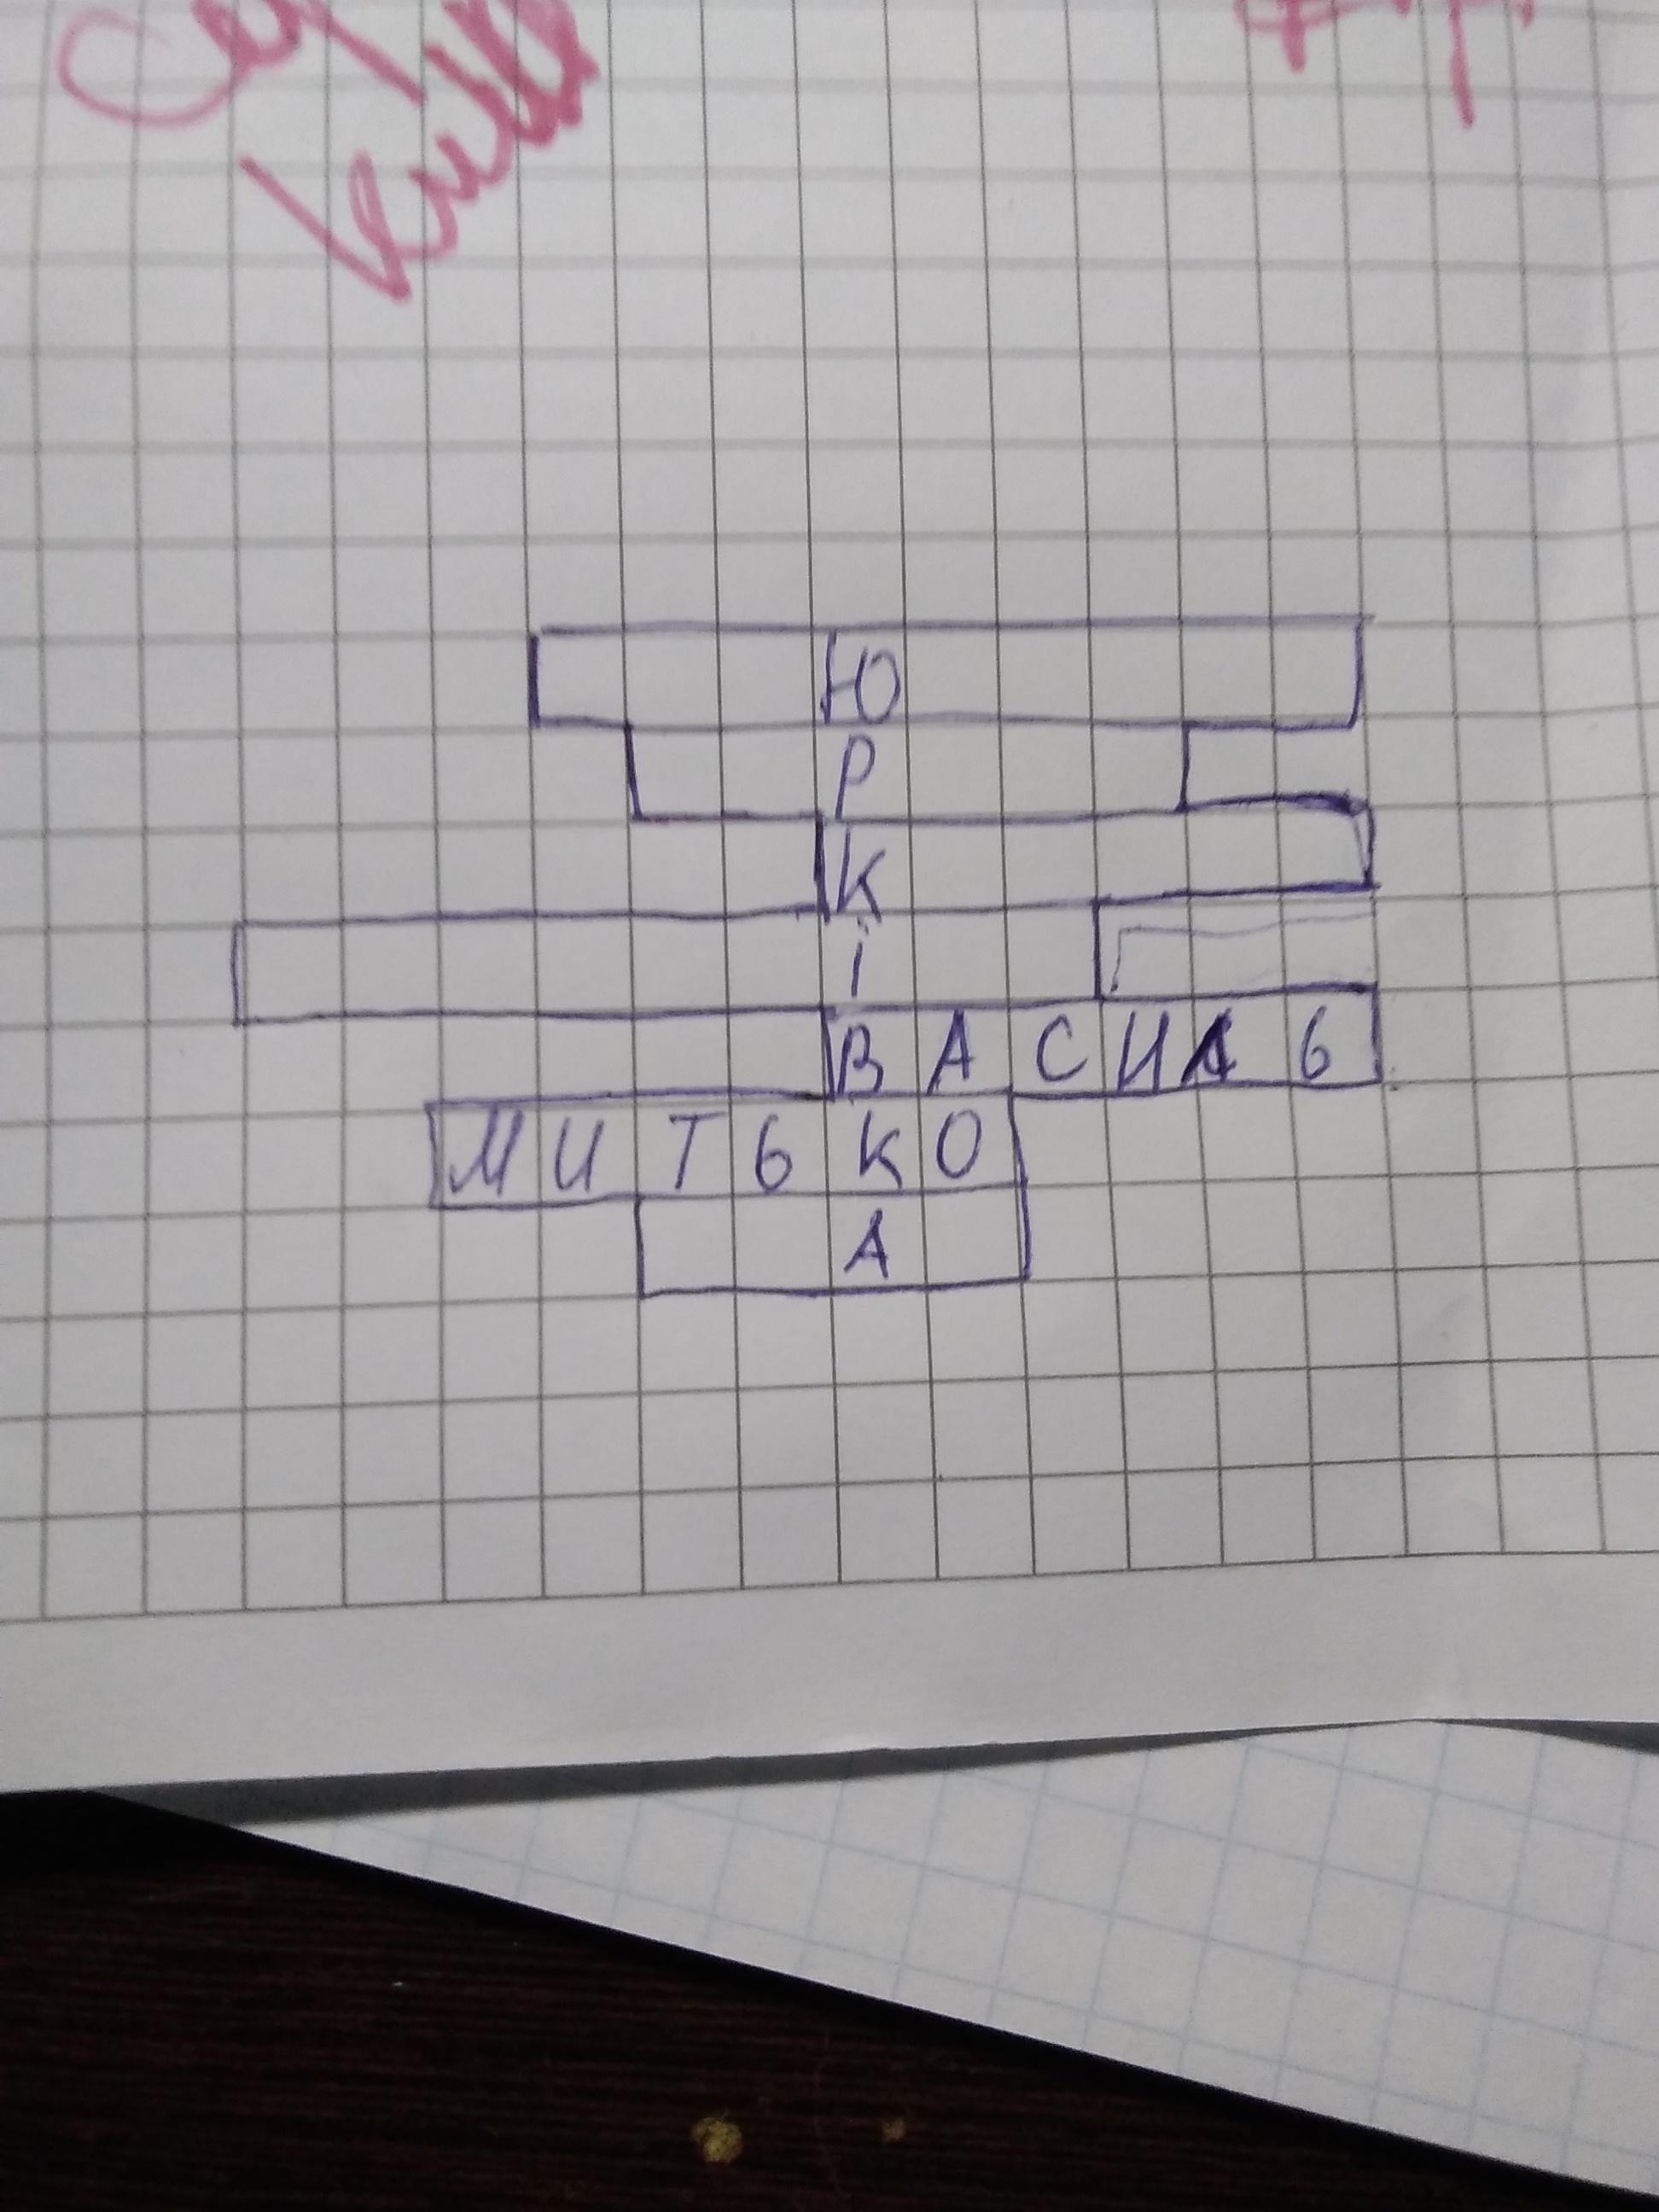 Ю
Р
К
і
ВАСИЛЬ
МИТЬКО
А